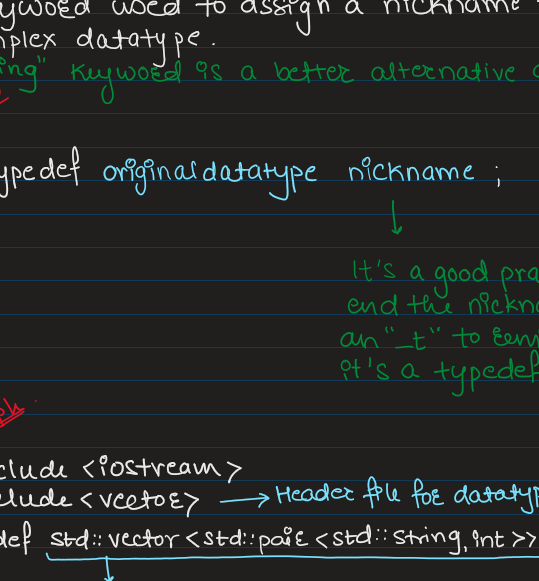 ywoed used to assign a nickname
mplex datatype.
ing" keywoed is a better alternative
ypedef originaldatatype nickname ;
It's a good pra
end the nickn
an "_t" to
it's a typedef
clude <iostream>
clude <vector> → Header file for datatyp
def std::vector<std::pair<std::string, int>>